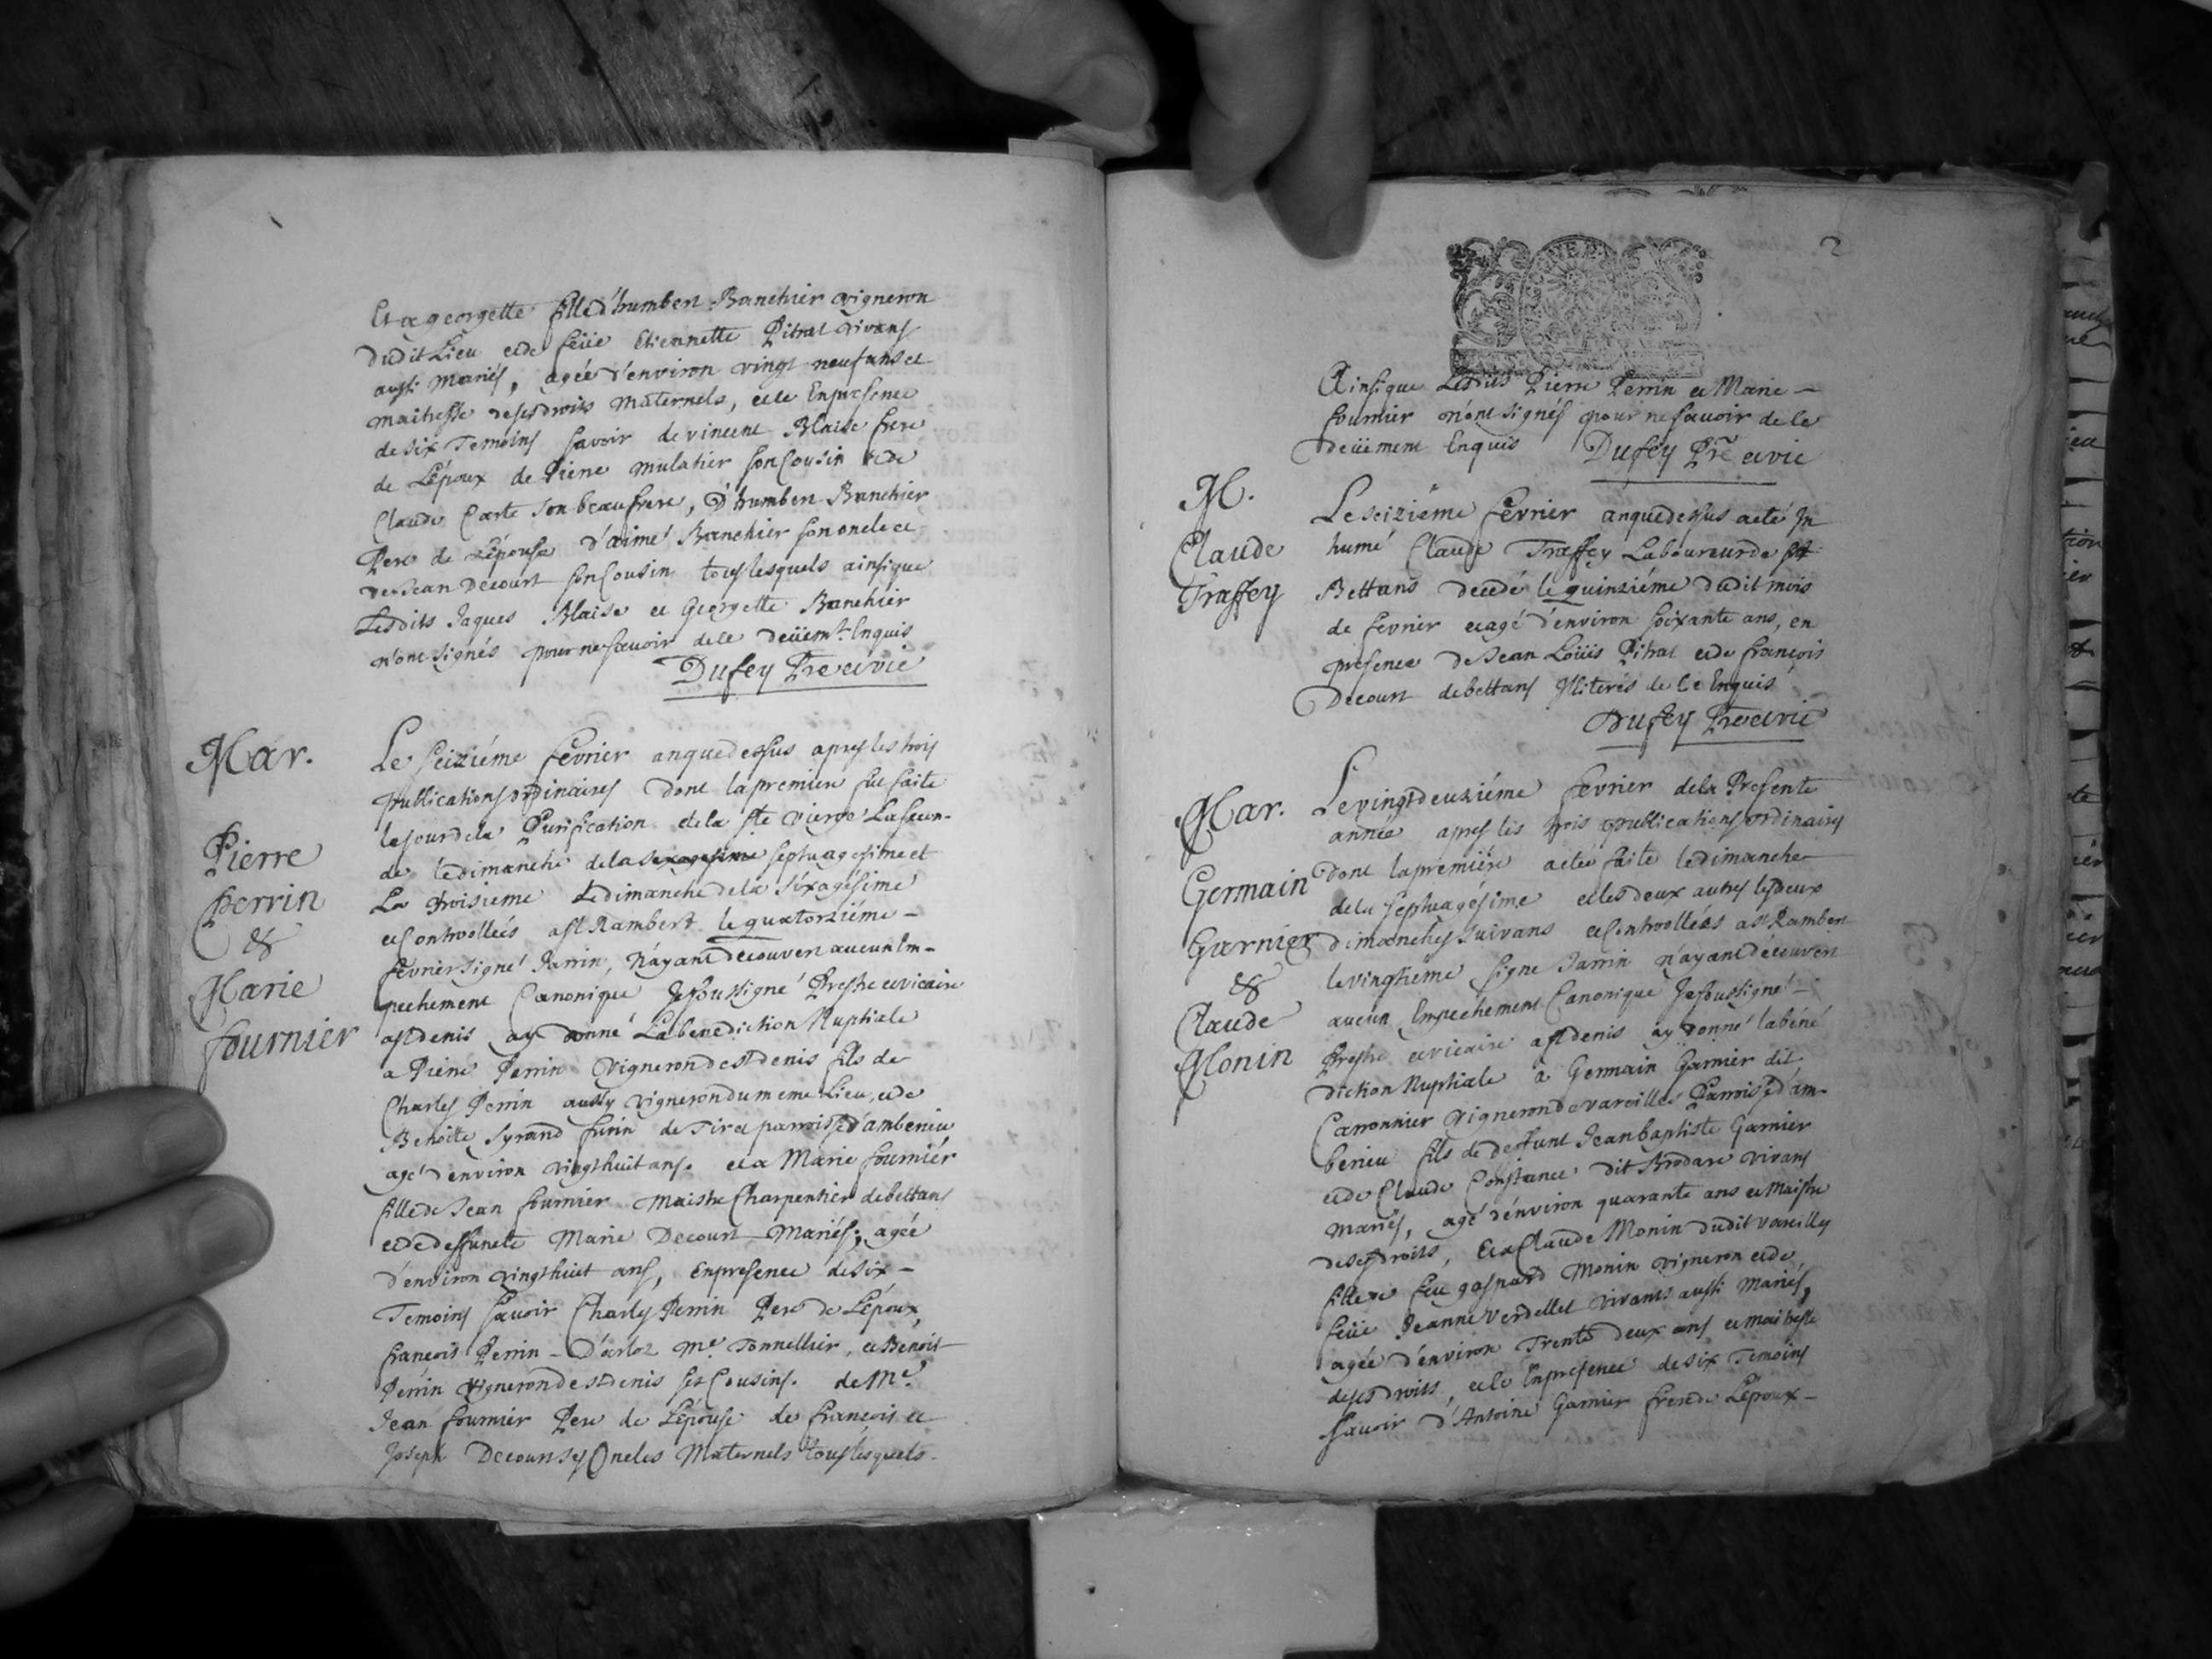 Et a georgette fille d'humbert Banchier vigneron
dudit Lieu et de feüe Etiennette Pitrat vivans
aussi mariés, agée d'environ vingt neuf ans et
maitresse de ses droits maternels, et ce En presence
de six Temoins savoir de vincent Blaise frere
de L'époux de Pierre mulatier son Cousin et de
Claude Carte son beaufrere, D'humbert Banchier
Pere de L'épouse d'aimé Banchier son oncle et
de Jean Decourt son Cousin tous lesquels ainsique
Lesdits Jaques Blaise et Georgette Banchier
n'ont signés pour ne savoir de ce deüemt. Enquis
Dufey Pre et vic
Mar.
Pierre
perrin
&
Marie
fournier
Le seiziéme fevrier an que dessus apres les trois
publications ordinaires dont la premiere fut faite
le jour de la Purification de la ste vierge La secon-
de le dimanche de la sexagesime septuagesime et
La troisieme Le dimanche de la sixagésime
et Controollées a st Rambert le quatorziéme -
fevrier signé Jarrin, n'ayant decouvert aucun Em-
pechement Canonique Je soussigné Prestre et vicaire
a st denis ay donné La benediction Nuptiale
a Pierre Perrin vigneron de st denis fils de
Charles Perrin aussy vigneron du meme Lieu, et de
Benoite Syrand furin de Tiret parroisse d'amberieu
agé d'environ vingt huit ans. et a Marie fournier
fille de Jean fournier Maistre Charpentier de bettans
et de deffuncte Marie Decourt Mariés; agée
d'environ vingt huit ans, En presence de six -
Temoins savoir Charles Perrin Pere de L'époux,
françois Perrin - D'arloz me. Tonnellier, et Benoit
Perrin vigneron de st denis ses Cousins. de Me.
Jean fournier Pere de L'épouse de françois et
Joseph Decourt ses Oncles Maternels tous lesquels -
2
Ainsique Lesdits Pierre Perrin et Marie -
fournier n'ont signés pour ne savoir de ce
deüement Enquis Dufey Pre et vic
M.
Claude
Traffey
Le seiziéme fevrier an que dessus a eté In
humé Claude Traffey Laboureur de
Bettans decedé le quinziéme dudit mois
de fevrier et agé d'environ soixante ans, en
presence de Jean Loüis Pitrat et de françois
Decourt de bettans Illiterés de ce Enquis
Dufey Pre et vic
Mar.
Germain
Garnier
&
Claude
Monin
Le vingt deuxiéme fevrier de la Presente
année apres les trois publications ordinaires
dont la premiére a eté faite le dimanche
de la septuagésime et les deux autres les deux
dimanches suivans et Controollées a st Rambert
le vingtieme signé Jarrin n'ayant decouvert
aucun Empechement Canonique Je soussigné -
Prestre et vicaire a st denis ay donné la béné
diction Nuptiale a Germain Garnier dit
Canonnier vigneron de vareilles Parroisse d'am-
berieu fils de deffunt Jean baptiste Garnier
et de Claude Constance dit Brodare vivans
mariés, agé d'environ quarante ans et Maistre
de ses droits, Et a Claude Monin dudit vareilles
fille de feu gaspard Monin vigneron et de
feüe Jeanne Verdellet vivants aussi Mariés,
agée d'environ Trente deux ans et maitresse
de ses Droits, et ce En presence de six Temoins
savoir d'Antoine Garnier frere de L'époux -